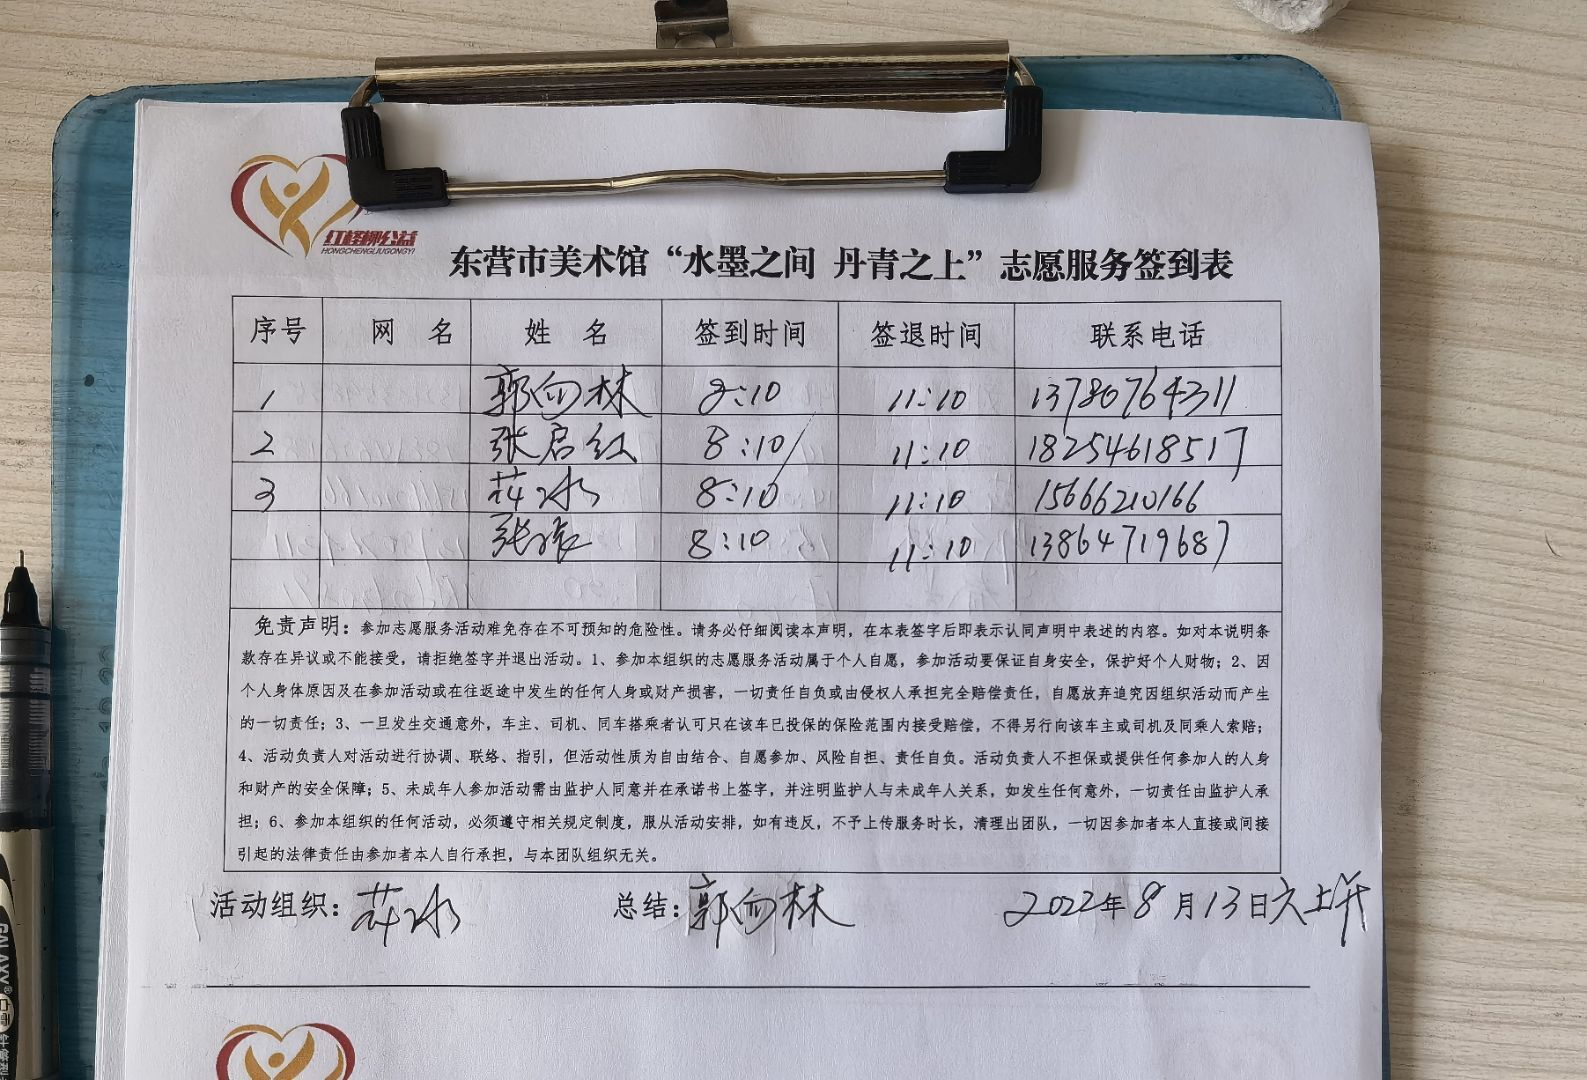 红柽柳公益
HONGCHENGLIUGONGYI
东营市美术馆“水墨之间 丹青之上”志愿服务签到表
序号 网 名 姓 名 签到时间 签退时间 联系电话
1 郭向林 8:10 11:10 13780764311
2 张启红 8:10 11:10 18254618517
3 冰 8:10 11:10 15666210166
张 8:10 11:10 13864719687
免责声明：参加志愿服务活动难免存在不可预知的危险性。请务必仔细阅读本声明，在本表签字后即表示认同声明中表述的内容。如对本说明条
款存在异议或不能接受，请拒绝签字并退出活动。1、参加本组织的志愿服务活动属于个人自愿，参加活动要保证自身安全，保护好个人财物；2、因
个人身体原因及在参加活动或在往返途中发生的任何人身或财产损害，一切责任自负或由侵权人承担完全赔偿责任，自愿放弃追究因组织活动而产生
的一切责任；3、一旦发生交通意外，车主、司机、同车搭乘者认可只在该车已投保的保险范围内接受赔偿，不得另行向该车主或司机及同乘人索赔；
4、活动负责人对活动进行协调、联络、指引，但活动性质为自由结合、自愿参加、风险自担、责任自负。活动负责人不担保或提供任何参加人的人身
和财产的安全保障；5、未成年人参加活动需由监护人同意并在承诺书上签字，并注明监护人与未成年人关系，如发生任何意外，一切责任由监护人承
担；6、参加本组织的任何活动，必须遵守相关规定制度，服从活动安排，如有违反，不予上传服务时长，清理出团队，一切因参加者本人直接或间接
引起的法律责任由参加者本人自行承担，与本团队组织无关。
活动组织：冰 总结：郭向林 2022年8月13日六上午
GALAXY